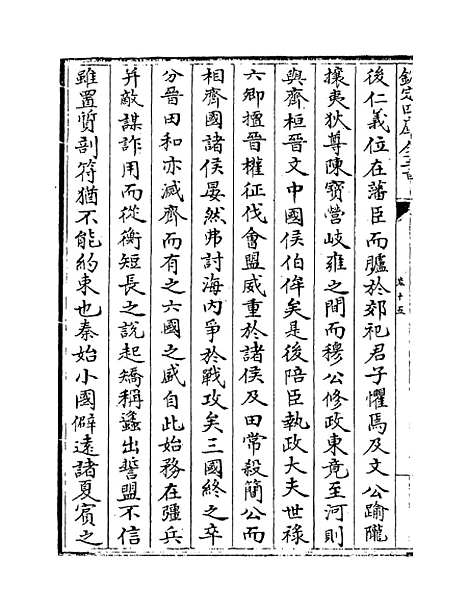 欽定四庫全書
卷十五
後仁義位在藩臣而臚於郊祀君子懼焉及文公踰隴
攘夷狄尊陳寶營岐雍之間而穆公修政東竟至河則
與齊桓晉文中國侯伯侔矣是後陪臣執政大夫世祿
六卿擅晉權征伐會盟威重於諸侯及田常殺簡公而
相齊國諸侯晏然弗討海内爭於戰攻矣三國終之卒
分晉田和亦滅齊而有之六國之盛自此始務在彊兵
并敵謀詐用而從衡短長之說起矯稱蠭出誓盟不信
雖置質剖符猶不能約束也秦始小國僻遠諸夏賓之